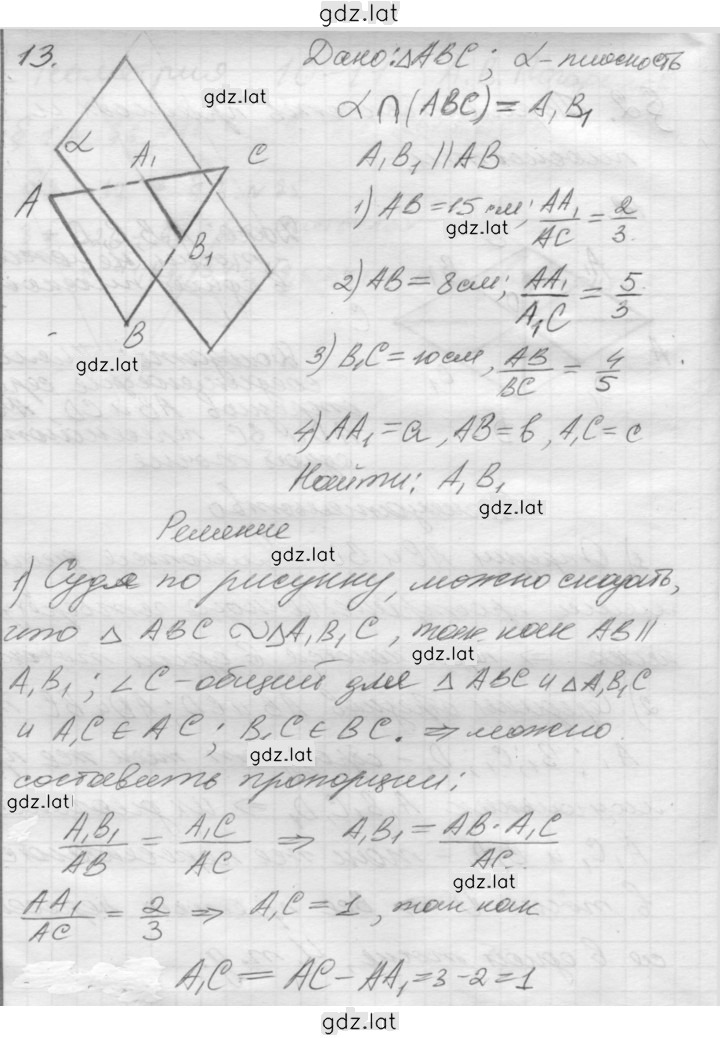 gdz.lat
13.
Дано: △ABC; α - плоскость
gdz.lat
α ∩ (ABC) = A₁B₁
α
A₁
C
A₁B₁ || AB
A
1) AB = 15 см; AA₁/AC = 2/3.
gdz.lat
B₁
2) AB = 8 см; AA₁/A₁C = 5/3
B
gdz.lat
3) B₁C = 10 см, AB/BC = 4/5
4) AA₁ = a, AB = b, A₁C = c
Найти: A₁B₁
gdz.lat
Решение
gdz.lat
1) Судя по рисунку, можно сказать,
что △ ABC ∾ △A₁B₁C, так как AB ||
gdz.lat
A₁B₁; ∠C - общий для △ ABC и △A₁B₁C
и A₁C ∈ AC; B₁C ∈ BC. ⇒ можно
gdz.lat
составить пропорции:
gdz.lat
A₁B₁/AB = A₁C/AC ⇒ A₁B₁ = AB · A₁C/AC.
gdz.lat
AA₁/AC = 2/3 ⇒ A₁C = 1, так как
A₁C = AC - AA₁ = 3 - 2 = 1
gdz.lat